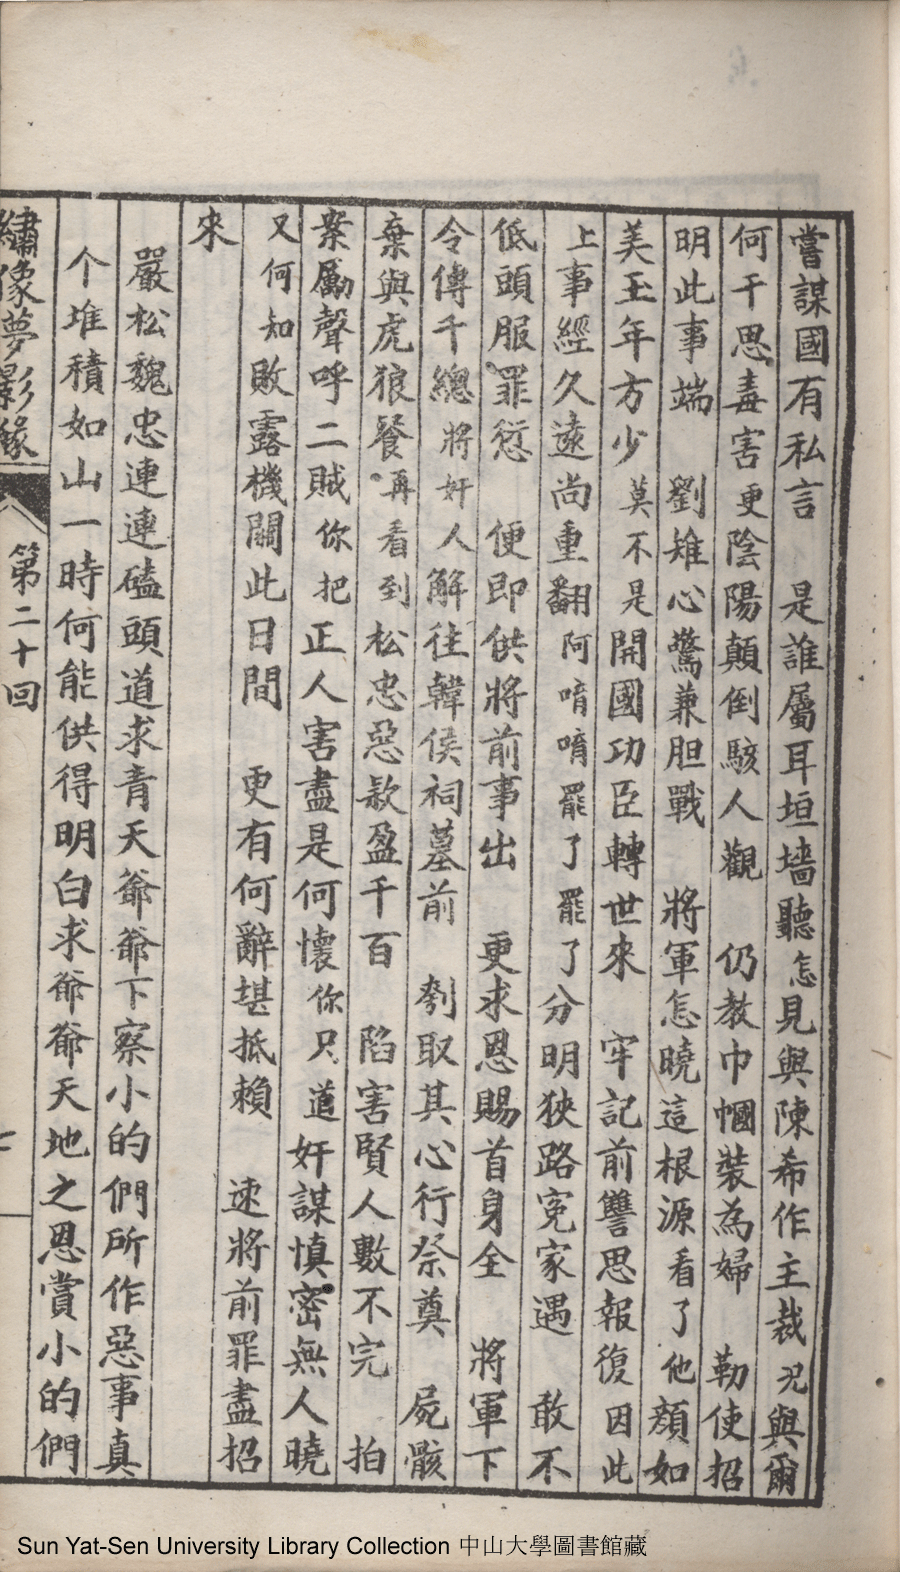 嘗謀國有私言　是誰屬耳垣墻聽怎見與陳希作主裁況與爾
何干思毒害更陰陽顛倒駭人觀　仍教巾幗裝為婦　勒使招
明此事端　劉雉心驚兼胆戰　將軍怎曉這根源看了他顔如
美玉年方少　莫不是開國功臣轉世來　牢記前讐思報復因此
上事經久遠尚重翻阿唷唷罷了罷了分明狹路寃家遇　敢不
低頭服罪愆　便即供將前事出　更求恩賜首身全　將軍下
令傳千總將奸人解往韓侯祠墓前　刳取其心行祭奠　屍骸
棄與虎狼餐再看到松忠惡欵盈千百　陷害賢人數不完　拍
案勵聲呼二賊你把正人害盡是何懷你只道奸謀慎密無人曉
又何知敗露機關此日間　更有何辭堪抵賴　速將前罪盡招
來
嚴松魏忠連連磕頭道求青天爺爺下察小的們所作惡事真
个堆積如山一時何能供得明白求爺爺天地之恩賞小的們
繡像夢影緣　第二十回
Sun Yat-Sen University Library Collection 中山大學圖書館藏